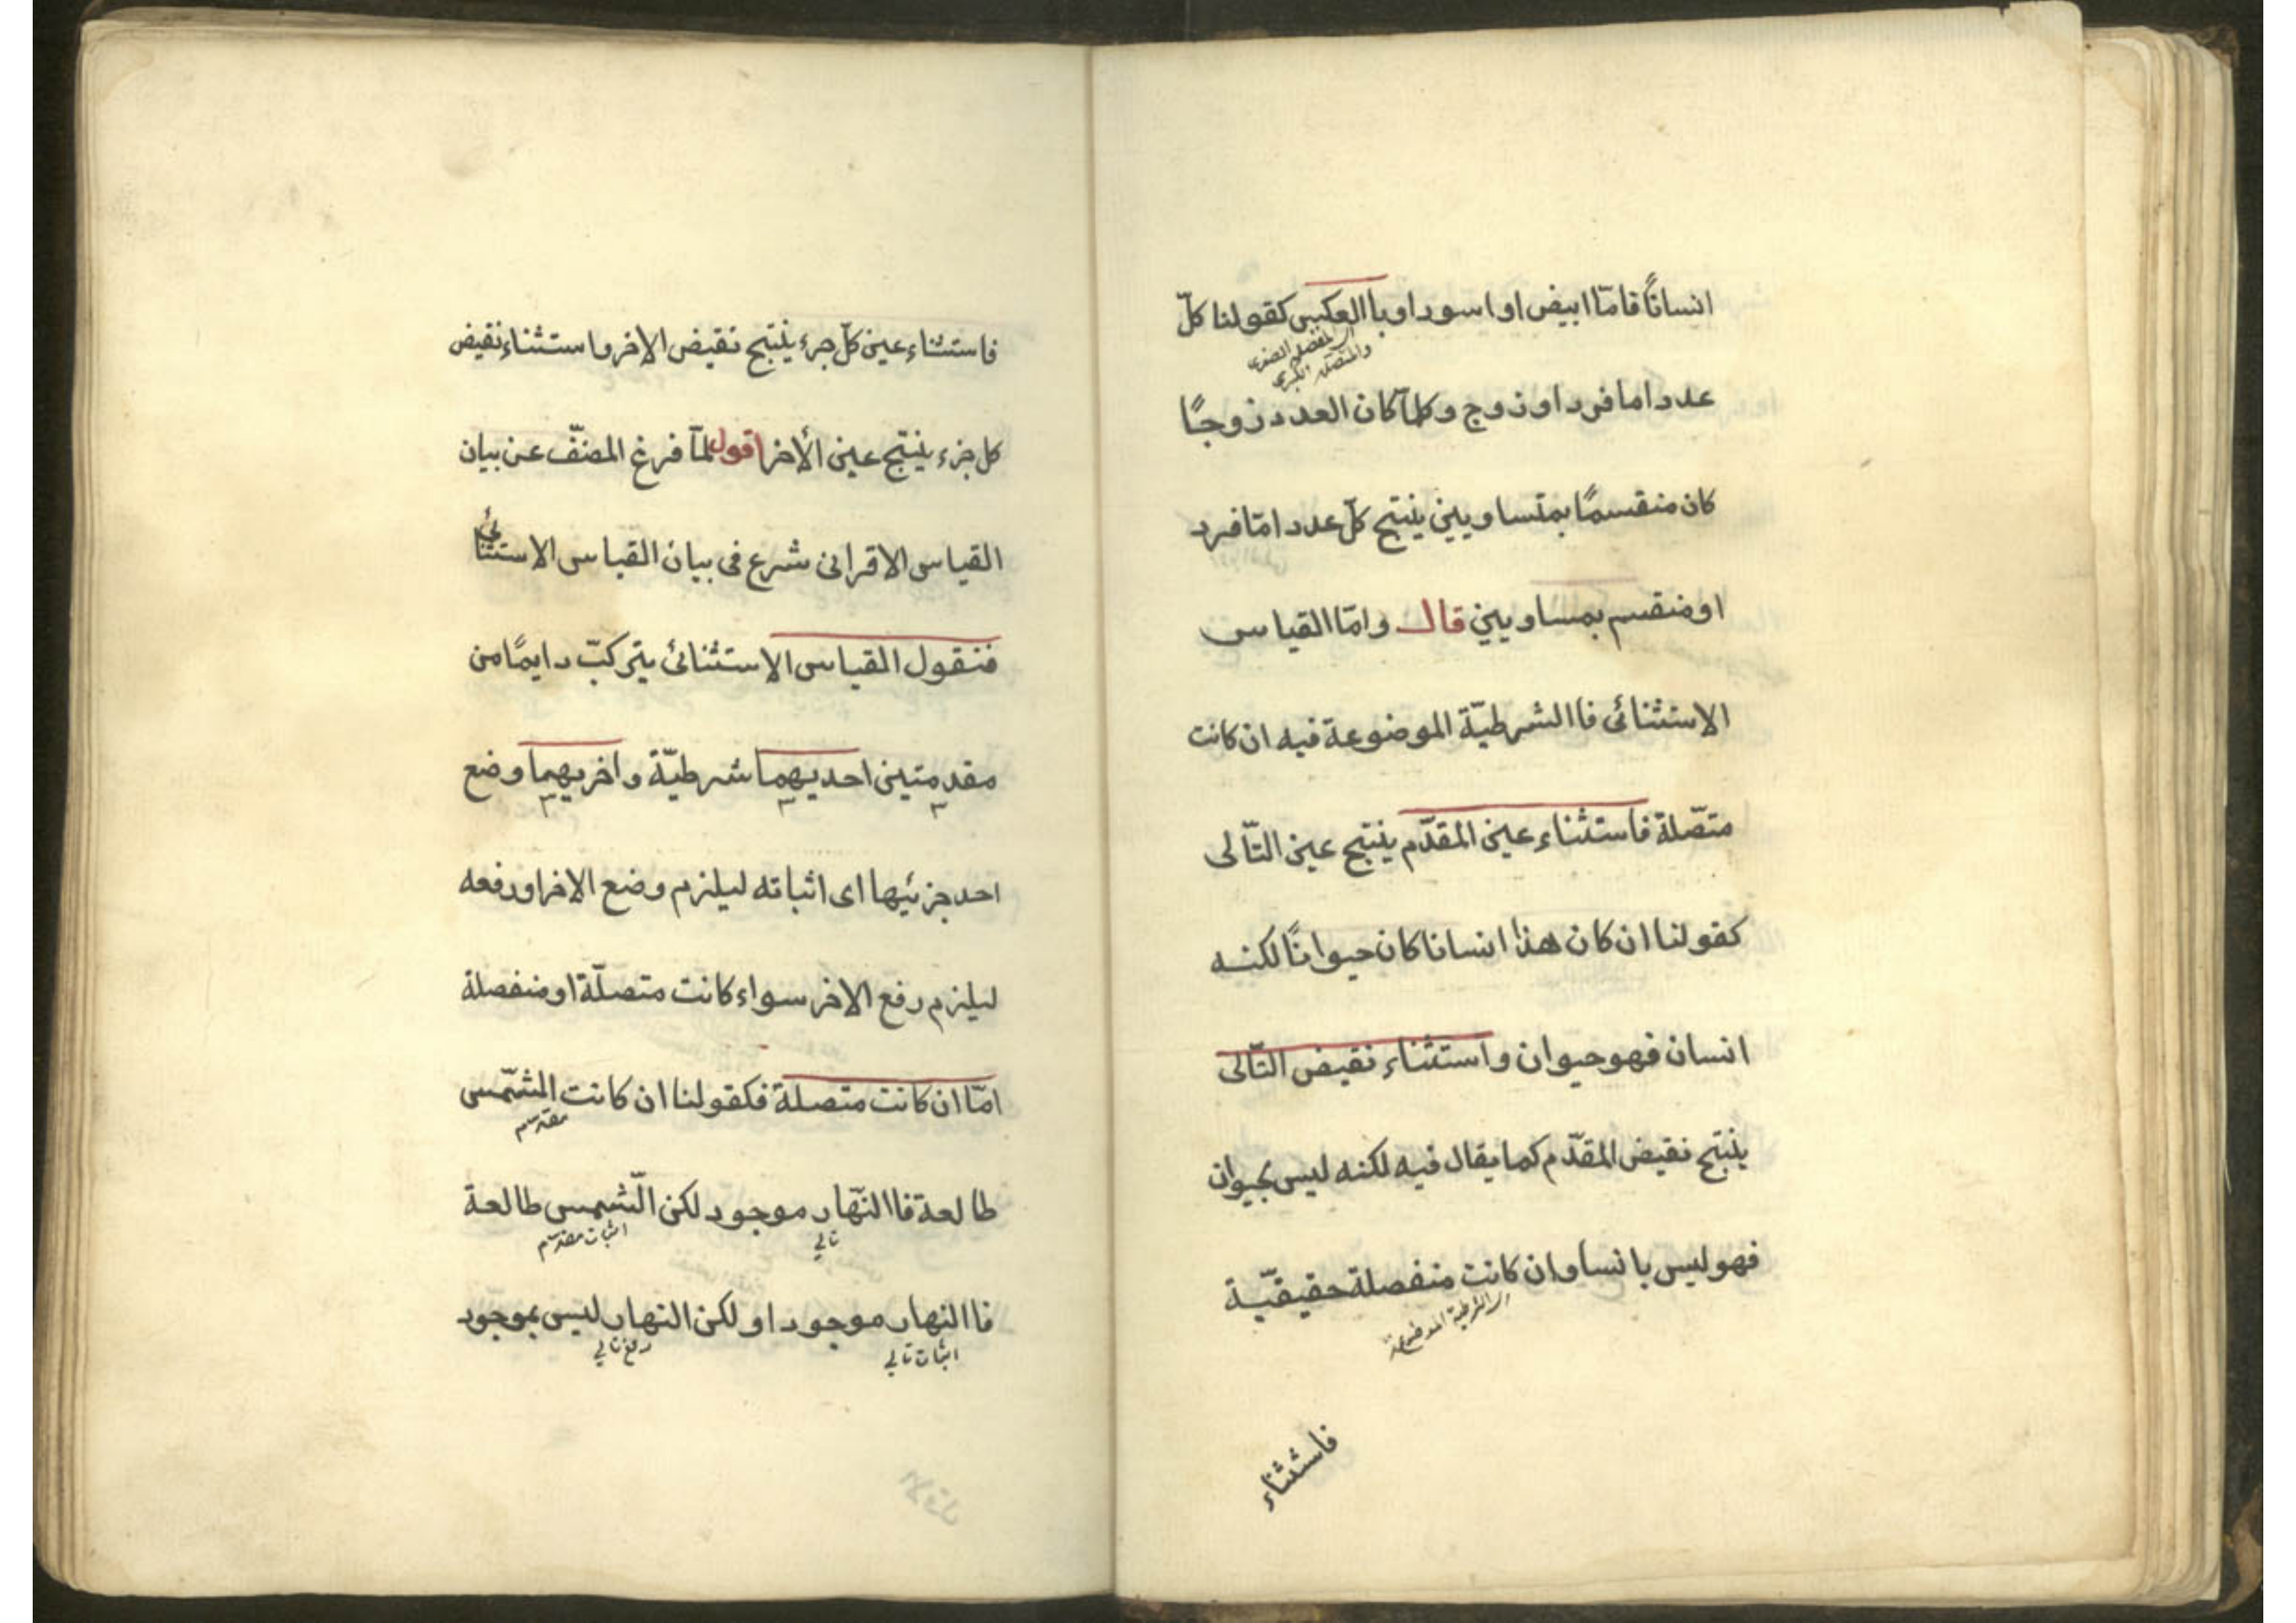 انسانًا فامّا ابيض او اسود او باالعكس كقولنا كلّ
المنفصله الصغرى
والمتصله الكبرى
عدد اما فرد او زوج وكلمّا كان العدد زوجًا
كان منقسمًا بمتساويين ينتج كلّ عدد امّا فرد
او منقسم بمساويين قال وامّا القياس
الاستثنائى فاالشرطيّة الموضوعة فيه ان كانت
متصّلة فاستثناء عين المقدّم ينتج عين التّالى
كقولنا ان كان هذا انسانا كان حيوانًا لكنه
انسان فهو حيوان واستثناء نقيض التّالى
ينتج نقيض المقدّم كما يقال فيه لكنه ليس بحيوان
فهو ليس بانسا وان كانت منفصلة حقيقيّة
الشرطية الموضوعة
فاستثناء
فاستثناء عين كلّ جزء ينتج نقيض الاخر واستثناء نقيض
كل جزء ينتج عين الأخر اقول لمّا فرغ المصنّف عن بيان
القياس الاقرانى شرع فى بيان القياس الاستثنائى
فنقول القياس الاستثنائى يتركبّ دايمًا من
مقدمتين احديهما شرطيّة واخريهما وضع
احد جزئيها اى اثباته ليلزم وضع الاخر اورفعه
ليلزم رفع الاخر سواء كانت متصلّة او منفصلة
امّا ان كانت متصلة فكقولنا ان كانت الشمّس
مقدم
طالعة فاالنّهار موجود لكن الشّمس طالعة
تالي
اثبات مقدم
فاالنهار موجود او لكن النهار ليس بموجود
اثبات تالي
رفع تالي